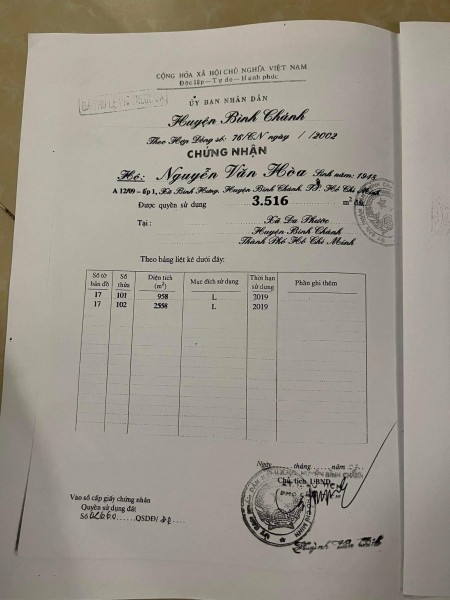 CỘNG HÒA XÃ HỘI CHỦ NGHĨA VIỆT NAM
Độc lập - Tự do - Hạnh phúc
ỦY BAN NHÂN DÂN
Huyện Bình Chánh
Theo Hợp Đồng số: 76/CN ngày / /2002
CHỨNG NHẬN
Hộ: Nguyễn Văn Hòa Sinh năm: 1945
A 12/09 - ấp 1, Xã Bình Hưng, Huyện Bình Chánh, TP. Hồ Chí Minh
Được quyền sử dụng 3.516 m² đất
Tại : Xã Đa Phước
Huyện Bình Chánh
Thành Phố Hồ Chí Minh
Theo bảng liệt kê dưới đây:
Số tờ bản đồ Số thửa Diện tích (m²) Mục đích sử dụng Thời hạn sử dụng Phần ghi thêm
17 101 958 L 2019
17 102 2558 L 2019
Ngày tháng năm
Chủ tịch UBND
Vào sổ cấp giấy chứng nhận
Quyền sử dụng đất
Số QSDĐ/